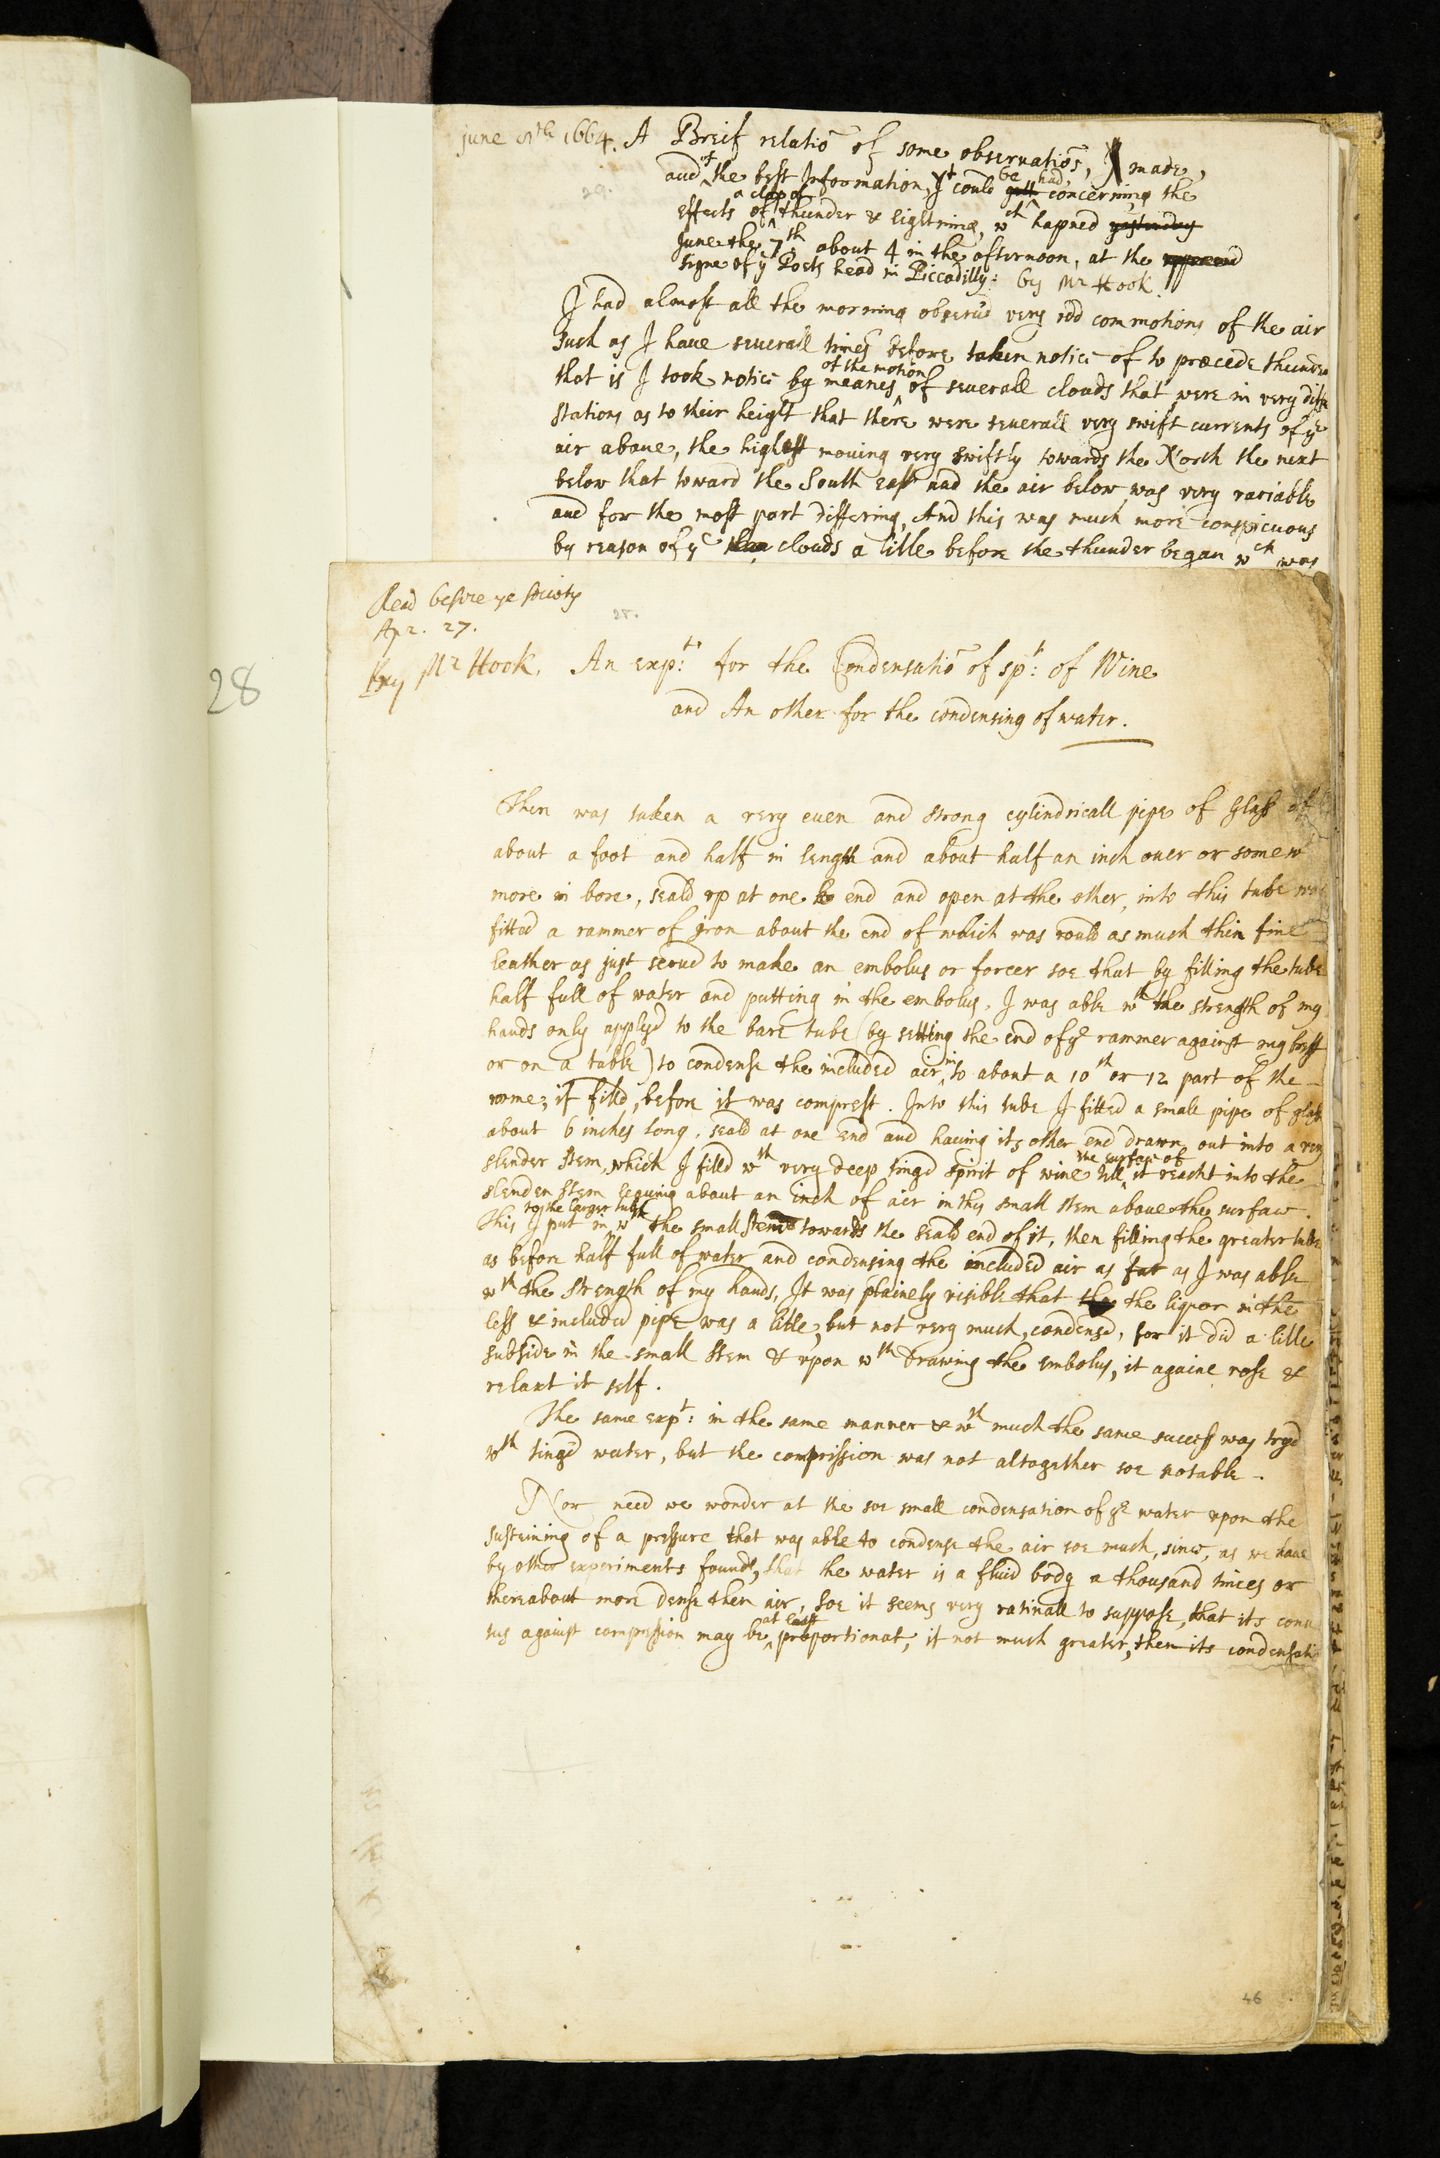 june 8th 1664. A Breif relatiō of some obseruatiōs, I made,
29.
and of the best Information, yt could be had, concerning the
effects of a clap of thunder & lightning, wch hapned yesterday
June the 7th about 4 in the afternoon, at the
signe of ye Poets head in Piccadilly: by Mr Hook.
I had almost all the morning obseru'd very odd commotions of the air
such as I haue seuerall times before taken notice of to præcede thunder
that is I took notice by meanes of the motion of seuerall clouds that were in very diffe
stations as to their height that there were seuerall very swift currents of ye
air aboue, the highest mouing very swiftly towards the North the next
below that toward the South east and the air below was very variable
and for the most part differing, And this was much more conspicuous
by reason of ye clouds a litle before the thunder began wch was
Read before ye society
Apr. 27.
28.
28
By Mr Hook. An expt: for the Condensatiō of spt: of Wine
and An other for the condensing of water.
Ther was taken a very euen and strong cylindricall pipe of Glass of
about a foot and half in length and about half an inch ouer or somew
more in bore, seald up at one end and open at the other, into this tube was
fitted a rammer of Iron about the end of which was rould as much thin fine
leather as just serud to make an embolus or forcer soe that by filling the tube
half full of water and putting in the embolus, I was able wth the strength of my
hands only applyd to the bare tube (by setting the end of ye rammer against my brest
or on a table) to condense the included air into about a 10th or 12 part of the
rome; it filld, before it was comprest. Into this tube I fitted a small pipe of glass
about 6 inches long, seald at one end and hauing its other end drawn out into a very
slender stem, which I filld wth very deep tingd spirit of wine till the surface of it reacht into the
slender stem leauing about an inch of air in this small stem aboue the surface.
This I put into the larger tube wth the small stem towards the seald end of it, then filling the greater tube
as before half full of water and condensing the included air as far as I was able
wth the strength of my hands, It was plainely visible that the the liquor in the
less & included pipe was a litle, but not very much, condensd, for it did a litle
subside in the small stem & upon wth drawing the embolus, it againe rose &
relaxt it self.
The same expt: in the same manner & wth much the same success was tryd
wth tingd water, but the compression was not altogether soe notable.
Nor need we wonder at the soe small condensation of ye water upon the
susteining of a pressure that was able to condense the air soe much, since, as we haue
by other experiments found, that the water is a fluid body a thousand times or
thereabout more dense then air, soe it seems very rationall to suppose, that its cona
tus against compression may be at least proportionat, if not much greater, then its condensati
46